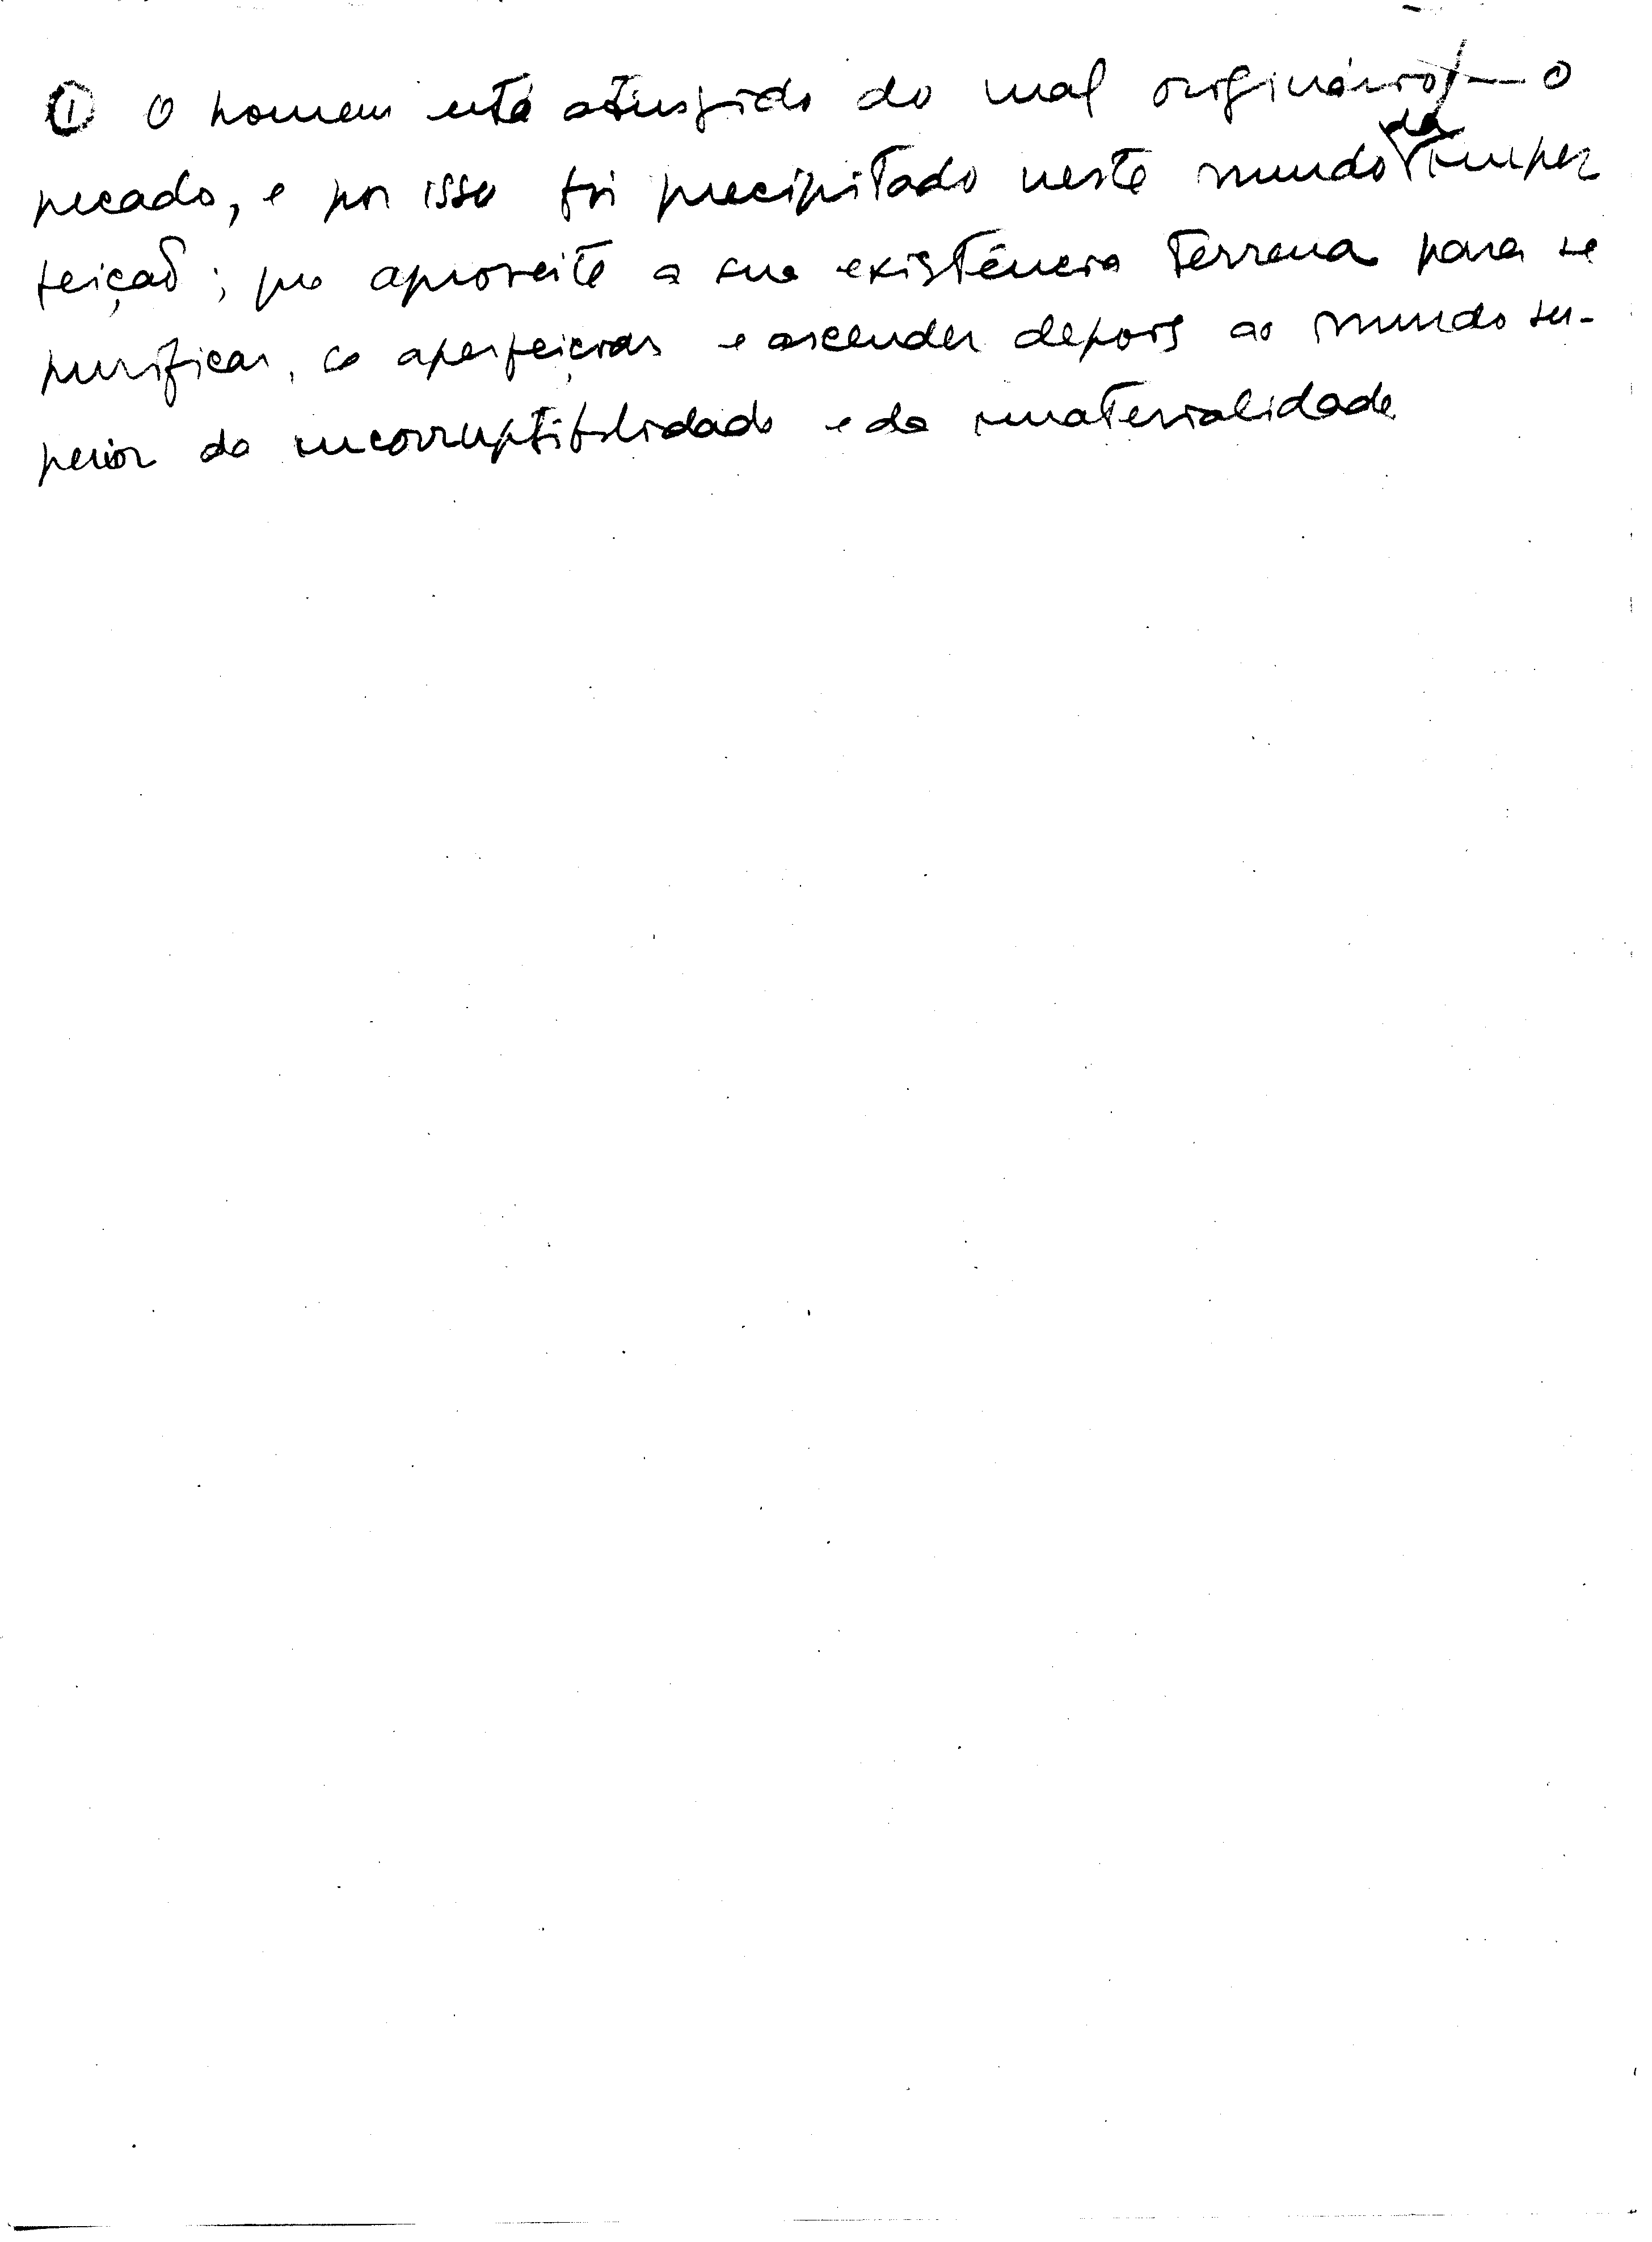 ① O homem está atingido do mal originário — o
pecado, e por isso foi precipitado neste mundo da imper
feição; que aproveite a sua existência terrena para se
purificar, se aperfeiçoar e ascender depois ao mundo su-
perior da incorruptibilidade e da imaterialidade